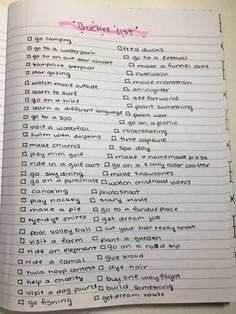 Bucket List
☐ go camping
☐ go to a waterpark ☐ feed ducks
☐ go to an out door concert ☐ go to a festival
☐ trampoline sleepover ☐ make a funnel cake
☐ star gazing ☐ riverwalk
☐ watch movie outside ☐ movie marathon
☐ learn to surf ☐ all-nighter
☐ go on a hike ☐ see fireworks
☐ learn a different language ☐ plant something
☐ go to a zoo ☐ paint war
☐ visit a waterfall ☐ go on a picnic
☐ swim with dolphins ☐ rollerskating
☐ make churros ☐ time capsule
☐ play mini golf ☐ spa day
☐ ride in a golf cart ☐ make a homemade pizza
☐ go sky diving ☐ go on a long roller coaster
☐ go on a parachute ☐ make snowcones
☐ canoeing ☐ watch childhood videos
☐ play hockey ☐ photoshoot
☐ make a pie ☐ scary movie
☐ tye-dye shirts ☐ go to a fondue place
☐ pool volley ball ☐ get dream job
☐ visit a farm ☐ cut your hair really short
☐ ride an elephant ☐ plant a garden
☐ ride a camel ☐ go on a road trip
☐ hula hoop contest ☐ give blood
☐ help a charity ☐ dye hair
☐ visit a dog pound ☐ buy one way flight
☐ go fishing ☐ build something
☐ get dream house